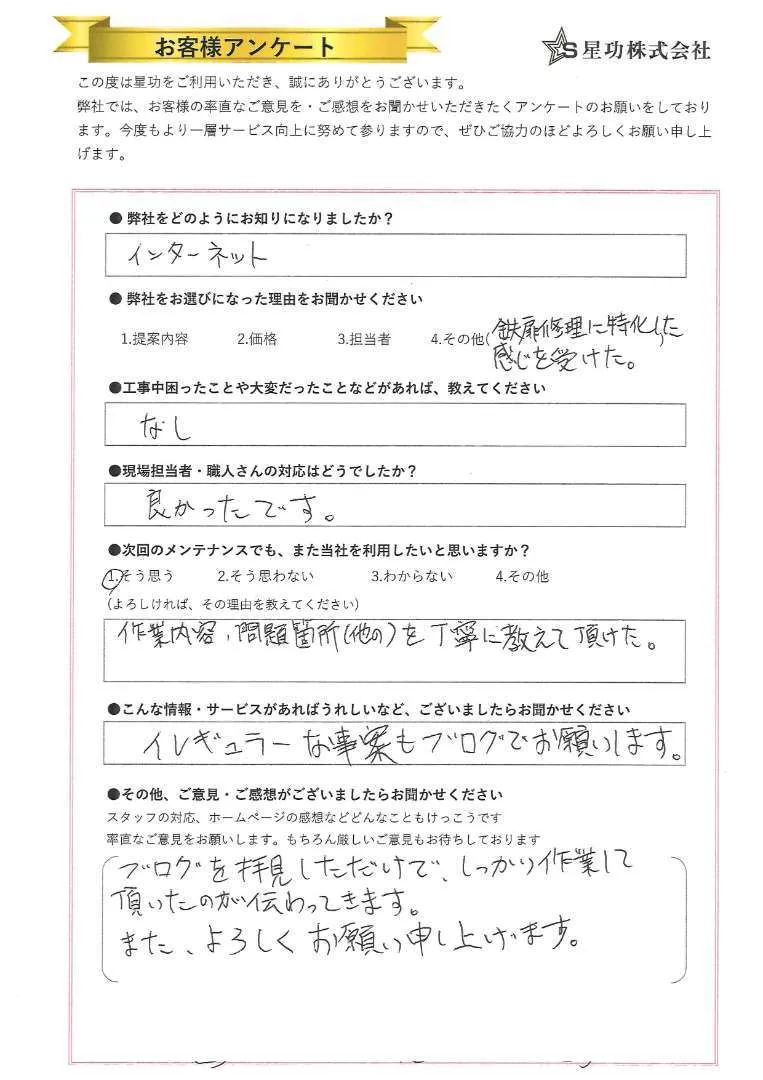 お客様アンケート
S星功株式会社
この度は星功をご利用いただき、誠にありがとうございます。
弊社では、お客様の率直なご意見を・ご感想をお聞かせいただきたくアンケートのお願いをしており
ます。今度もより一層サービス向上に努めて参りますので、ぜひご協力のほどよろしくお願い申し上
げます。
● 弊社をどのようにお知りになりましたか？
インターネット
● 弊社をお選びになった理由をお聞かせください
1.提案内容 2.価格 3.担当者 4.その他( 鉄扉修理に特化した )
感じを受けた。
●工事中困ったことや大変だったことなどがあれば、教えてください
なし
●現場担当者・職人さんの対応はどうでしたか？
良かったです。
●次回のメンテナンスでも、また当社を利用したいと思いますか？
1.そう思う 2.そう思わない 3.わからない 4.その他
（よろしければ、その理由を教えてください）
作業内容、問題箇所(他の)を丁寧に教えて頂けた。
●こんな情報・サービスがあればうれしいなど、ございましたらお聞かせください
イレギュラーな事案もブログでお願いします。
●その他、ご意見・ご感想がございましたらお聞かせください
スタッフの対応、ホームページの感想などどんなこともけっこうです
率直なご意見をお願いします。もちろん厳しいご意見もお待ちしております
ブログを拝見しただけで、しっかり作業して
頂いたのが伝わってきます。
また、よろしくお願い申し上げます。